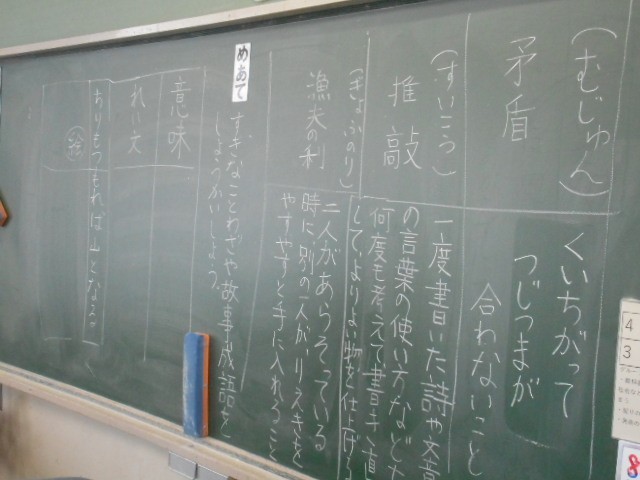 (むじゅん)
矛盾
くいちがって
つじつまが
合わないこと
(すいこう)
推敲
一度書いた詩や文章
の言葉の使い方などを
何度も考えて書き直
して、よりよい物を仕上げる
(ぎょふのり)
漁夫の利
二人があらそっている
時に別の人が、りえきを
やすやすと手に入れること
めあて
すきなことわざや故事成語を
しょうかいしよう。
意味
れい文
ちりもつもれば山となる
絵
4
3
8